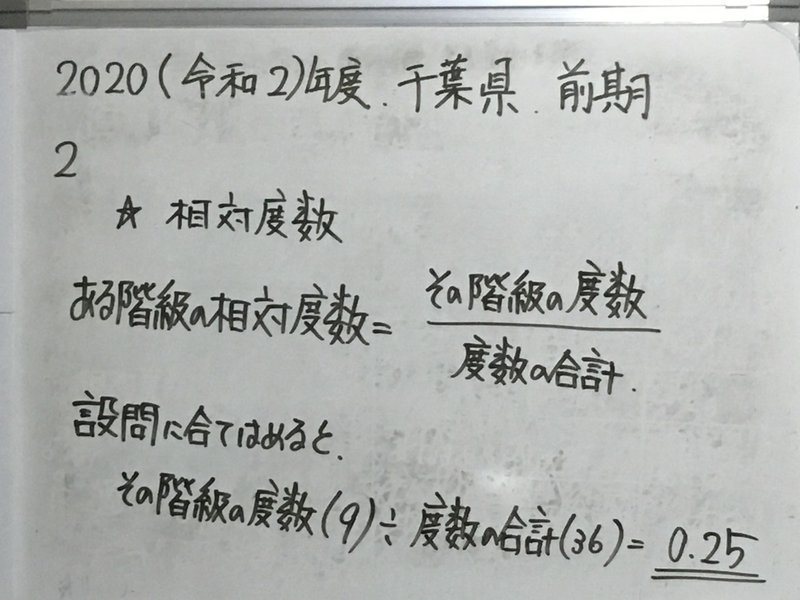 2020(令和2)年度.千葉県.前期
2
☆ 相対度数
ある階級の相対度数= その階級の度数
度数の合計.
設問に合てはめると、
その階級の度数(9)÷度数の合計(36)= 0.25